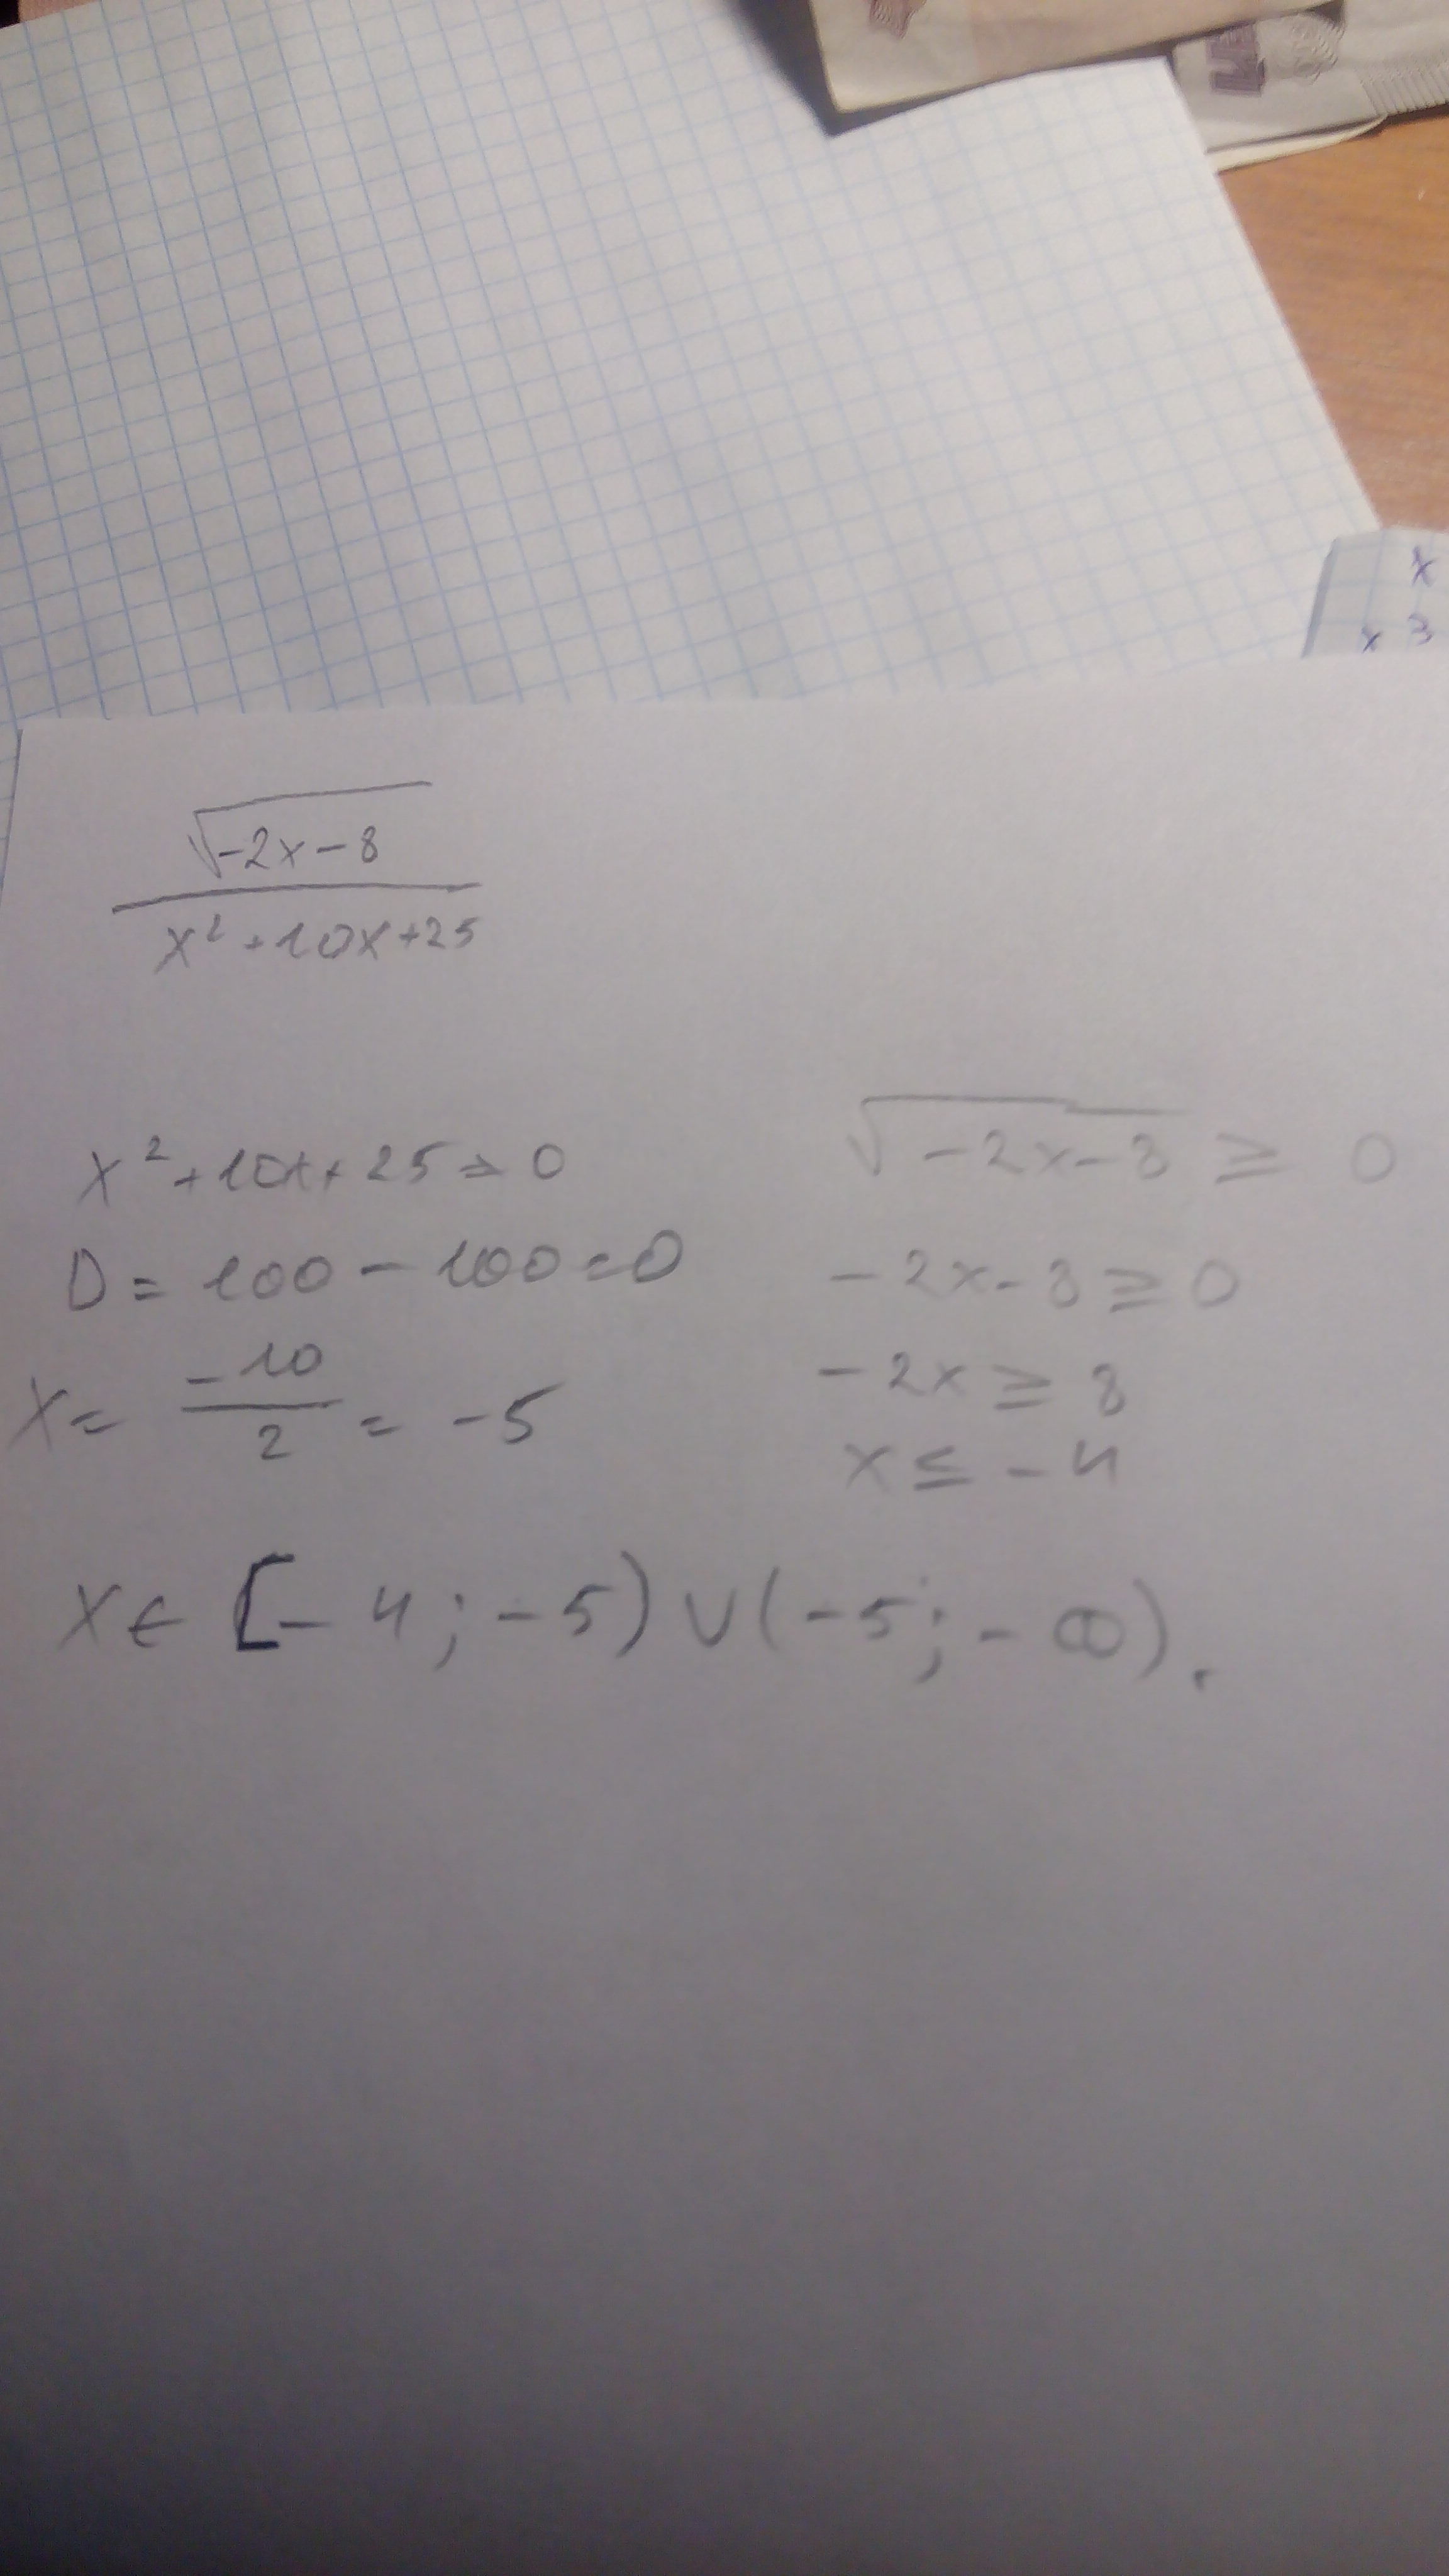 x
x 3
√-2x-8
x²+10x+25
x²+10x+25=0
D=100-100=0
x=-10/2=-5
√-2x-8≥0
-2x-8≥0
-2x≥8
x≤-4
x∈[-4;-5)∪(-5;-∞).